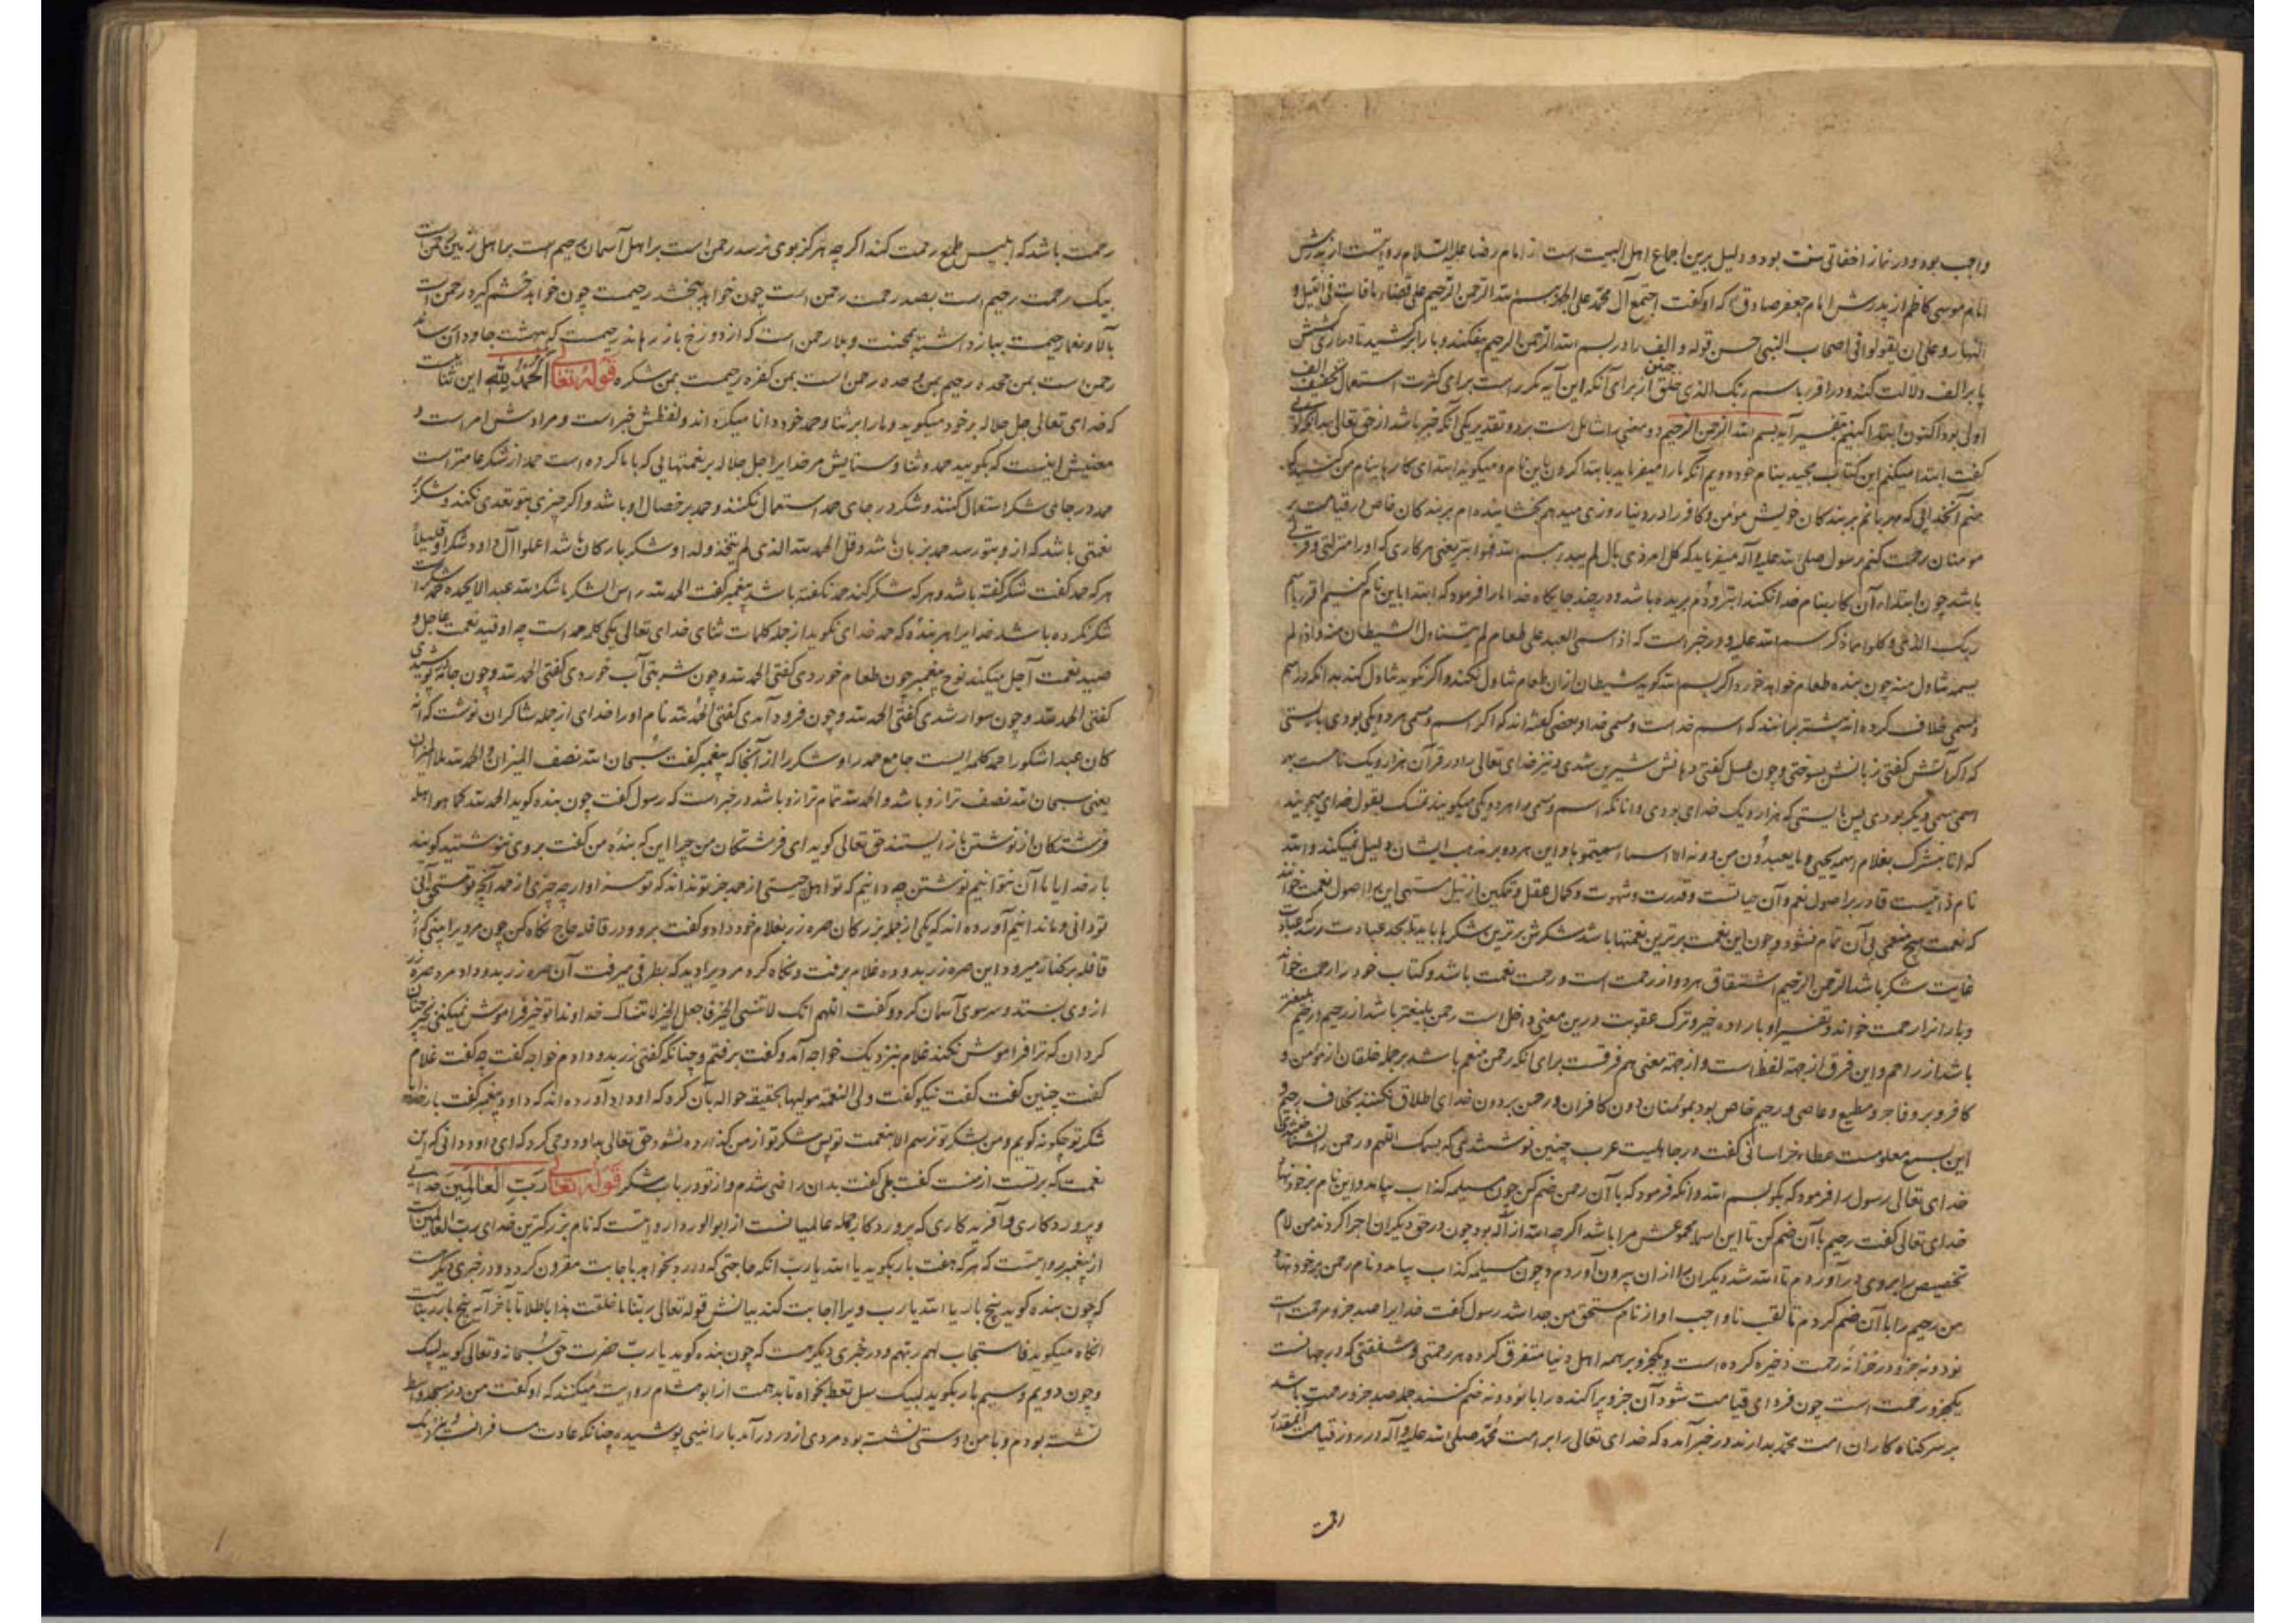 واجب بود و در نماز اخفاتی سنت بود و دلیل برین اجماع اهل البیت است از امام رضا علیه السلام روایتست از پدرش
امام موسی کاظم از پدرش امام جعفر صادق که او گفت اجتمع آل محمد علی الجهر ببسم الله الرحمن الرحیم علی قضاء ما فات فی اللیل و
النهار و علی ان یقولوا فی اصحاب النبی احسن قوله و الف را در بسم الله الرحمن الرحیم بیفکندند و با را برکشیدند تا درازی کشش
با بر الف دلالت کند و در اقرء باسم ربک الذی خلق از برای آنکه این آیه مکرر است برای کثرت استعمال تخفیف
اولی بود اکنون ابتدا کنیم بتفسیر آیه بسم الله الرحمن الرحیم دو معنی را شامل است بر دو تقدیر یکی آنکه خبر باشد از حق تعالی بدانکه او
گفت ابتدا میکنم این کتاب مجید بنام خود دویم آنکه ما را میفرماید بابتدا کردن باین نام و میگوید ابتدای کارها بنام من کنید که
منم آنخدایی که مهربانم بر بندکان خویش مؤمن و کافر را در دنیا روزی میدهم بخشاینده ام بر بندکان خاص در قیامت بر
مومنان رحمت کنم رسول صلی الله علیه و آله میفرماید که کل امر ذی بال لم یبدء ببسم الله فهو ابتر یعنی هر کاری که او را منزلتی و قربی
باشد چون ابتدار آن کار بنام خدا نکنند ابتر و دُم بریده باشد و در چند جایگاه خدا ما را فرمود که ابتدا باین نام کنیم اقرء باسم
ربک الاعلی و کلوا مما ذکر اسم الله علیه و در خبر است که اذا سمی العبد علی طعام لم یتناول الشیطان منه و اذا لم
یسمه تناول منه چون بنده طعام خواهد خورد اگر بسم الله گوید شیطان ازان طعام تناول نکند و اگر نگوید تناول کند بدانکه در اسم
و مسمی خلاف کرده اند بیشتر برانند که اسم خداست و مسمی خدا و بعضی گفته اند که اگر اسم و مسمی هر دو یکی بودی بایستی
که اگر آتش گفتی زبانش بسوختی و چون عسل گفتی دهانش شیرین شدی و نیز خدای تعالی را در قرآن هزار و یک نامست هر
اسمی مسمی دیگر بودی پس بایستی که هزار و یک خدای بودی و آنانکه اسم و مسمی را هر دو یکی میگویند تمسک بقول خدای میجویند
که انا نبشرک بغلام اسمه یحیی و ما یعبدون من دونه الا اسماء سمیتموها و این هر دو بر مذهب ایشان دلیل نمیکند و الله
نام ذاتیست قادر بر اصول نعم و آن حیاتست و قدرت و شهوت و کمال عقل و تمکین از نیل مشتهی این را اصول نعمت خوانند
که نعمت هیچ منعمی بی آن تمام نشود و چون این نعمت برترین نعمتها باشد شکرش برترین شکرها باید تا بحد عبادت رسد که عبادت
غایت شکر باشد الرحمن الرحیم اشتقاق هر دو از رحمت است و رحمت نعمت باشد و کتاب خود را رحمت خواند
و باران را رحمت خواند و تفسیر او باراده خیر و ترک عقوبت درین معنی داخل است رحمن بلیغتر باشد از رحیم و رحیم بلیغتر
باشد از راحم و این فرق از جهة لفظ است و از جهة معنی هم فرقست برای آنکه رحمن منعم باشد بر جمله خلقان از مؤمن و
کافر و بر و فاجر و مطیع و عاصی و رحیم خاص بود بمؤمنان دون کافران و رحمن بر دون خدای اطلاق نکنند بخلاف رحیم و
خدای تعالی رسول را فرمود که بگو بسم الله و آنکه فرمود که با آن رحمن ضم کن چون مسیلمه کذاب بیامد و این نام بر خود نهاد
خدای تعالی گفت رحیم با آن ضم کن تا این اسما بمجموعش مرا باشد اگر چه الله از آله بود چون در حق دیگران اجرا کردند من لام
تخصیص را بر وی در آوردم تا الله شد دیگران را ازان بیرون آوردم و چون مسیلمه کذاب بیامد و نام رحمن بر خود نهاد
من رحیم را با آن ضم کردم تا لقب ناواجب او از نام مستحق من جدا شد رسول گفت خدایرا صد جزو مرحمت است
نود و نه جزو در خزانه رحمت ذخیره کرده است و یکجزو بر همه اهل دنیا متفرق کرده هر رحمتی و شفقتی که در جهانست
یکجزو رحمت است چون فردای قیامت شود آن جزو پراکنده را با نود و نه ضم کنند جمله صد جزو رحمت باشد
بر سر کناه کاران امت محمد بدارند و در خبر آمده که خدای تعالی را بر امت محمد صلی الله علیه و آله در روز قیامت آنمقدار
رحمت
رحمت باشد که ابلیس طمع رحمت کند اگر چه هرگز بوی نرسد رحمن است بر اهل آسمان رحیم است بر اهل زمین رحمن است
بیک رحمت رحیم است بصد رحمت رحمن است چون خواهد ببخشد رحیمست چون خواهد خشم گیرد رحمن است
بآلا و نعما رحیمست ببازداشته محنت و بلا رحمن است که از دوزخ باز رهاند رحیمست که ببهشت جاودان رساند
رحمن است بمن جحده رحیم بمن وحده رحمن است بمن کفره رحیمست بمن شکره قوله تعالی الحمد لله این ثنائیست
که خدای تعالی جل جلاله بر خود میگوید و ما را بر ثنا و حمد خود دانا میگرداند و لفظش خبر است و مرادش امر است و
معنیش اینست که بگویید حمد و ثنا و ستایش مر خدایرا جل جلاله بر نعمتهایی که با ما کرده است حمد از شکر عامتر است
حمد در جای شکر استعمال کنند و شکر در جای حمد استعمال نکنند و حمد بر خصال او باشد و اگر چیزی بتو تعدی نکند و شکر بر
نعمتی باشد که از و بتو رسد حمد بزبان باشد و قل الحمد لله الذی لم یتخذ ولدا و شکر بارکان باشد اعملوا آل داود شکرا و قلیلا
هر که حمد گفت شکر گفته باشد و هر که شکر کند حمد نگفته باشد پیغمبر گفت الحمد لله راس الشکر ما شکر الله عبد الا بحمده
شکر نکرده باشد خدایرا هر بنده که حمد خدای نگوید از جمله کلمات ثنای خدای تعالی یکی کلمه حمد است چه او قید نعمت عاجل و
صید نعمت آجل میکند نوح پیغمبر چون طعام خوردی گفتی الحمد لله و چون شربتی آب خوردی گفتی الحمد لله و چون جامه پوشیدی
گفتی الحمد لله و چون سوار شدی گفتی الحمد لله و چون فرود آمدی گفتی الحمد لله نام او را خدای از جمله شاکران نوشت که انه
کان عبدا شکورا حمد کلمه ایست جامع حمد را و شکر را از آنجا که پیغمبر گفت سبحان الله نصف المیزان و الحمد لله ملأ المیزان
یعنی سبحان الله نصف ترازو باشد و الحمد لله تمام ترازو باشد در خبر است که رسول گفت چون بنده گوید الحمد لله کما هو اهله
فرشتکان از نوشتن باز ایستند حق تعالی گوید ای فرشتکان من چرا این که بنده من گفت بر وی ننوشتید گویند
بار خدایا ما آن نتوانیم نوشتن چه دانیم که تو اهل چیستی از حمد جز تو نداند که تو سزاوار چه چیزی از حمد آنچه تو مستحق آنی
تو دانی و ما ندانیم آورده اند که یکی از جمله بزرکان صره زر بغلام خود داد و گفت برو و در قافله حاج نگاه کن چون مردیرا بینی که از
قافله بر کنار میرود این صره زر بدو ده غلام برفت و نگاه کرد مردیرا دید که بطرفی میرفت آن صره زر بدو داد مرد صره زر
از وی بستد و سر سوی آسمان کرد و گفت اللهم انک لا تنسی الخیر فاجعل الخیر لا تنساک خداوندا تو خیر فراموش نمیکنی خیر چنان
گردان که ترا فراموش نکند غلام بنزدیک خواجه آمد و گفت برفتم و چنانکه گفتی زر بدو دادم خواجه گفت چه گفت غلام
گفت چنین گفت گفت نیکو گفت ولی النعمة مولیها بحقیقه حواله بآن کرد که او داد آورده اند که داود پیغمبر گفت بار خدایا
شکر تو چگونه گویم و من بشکر تو نرسم الا بنعمت تو پس شکر تو از من گذارده نشود حق تعالی بداود وحی کرد که ای داود دانی که این
نعمت که بر تست از منست گفت بلی گفت بدان راضی شدم و از تو در باب شکر قوله تعالی رب العالمین خدایی
و پروردکاری و آفریدکاری که پروردکار جمله عالمیانست از ابو الدردا روایتست که نام بزرگترین خدای رب العالمین است
از پیغمبر روایتست که هر که هفت بار بگوید یا الله یا رب آنکه حاجتی که دارد بخواهد باجابت مقرون گردد و در خبری دیگرست
که چون بنده گوید پنج بار یا الله یا رب ویرا اجابت کند بیانش قوله تعالی ربنا ما خلقت هذا باطلا تا بآخر آیه پنج بار ربناست
آنگاه میگوید فاستجاب لهم ربهم و در خبری دیگرست که چون بنده گوید یا رب حضرت حق سبحانه و تعالی گوید لبیک
و چون دویم و سیم بار بگوید لبیک سل تعط بخواه تا بدهمت از ابو هشام روایت میکنند که او گفت من در مسجد واسط
نشسته بودم و با من دوستی نشسته بود مردی از در در آمد بارانیی پوشیده چنانکه عادت مسافرانست